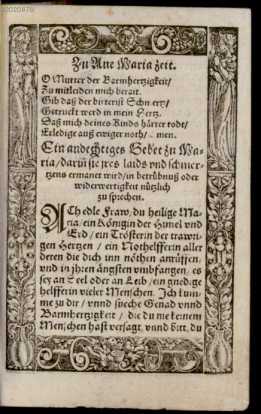 Zu Ane Maria zeit.
O Mutter der Barmhertzigkeit/
Zu mitleiden mich berait.
Gib daß der bitterist Schmertz/
Getruckt werd in mein Hertz.
Daß mich deines Kinds härter todt/
Erledige auß ewiger noth/ Amen.
Ein andechtiges Gebet zu Ma-
ria/darin sie jres laids vnd schmer-
tzens ermanet wird/in betrübnuß oder
widerwertigkeit nützlich
zu sprechen.
ACh edle Fraw/du heilige Ma-
ria/ein Königin der Himel vnd
Erd/ein Trösterin der trawri-
gen Hertzen/ein Nothelfferin aller
deren die dich inn nöthen anrüffen/
vnd in jhren ängsten vmbfangen/es
sey an Seel oder an Leib/ein gnedige
helfferin vieler Menschen. Ich kum-
me zu dir/vnnd suche Genad vnnd
Barmhertzigkeit/die du nie keinem
Menschen hast versagt, vnnd bitt, du